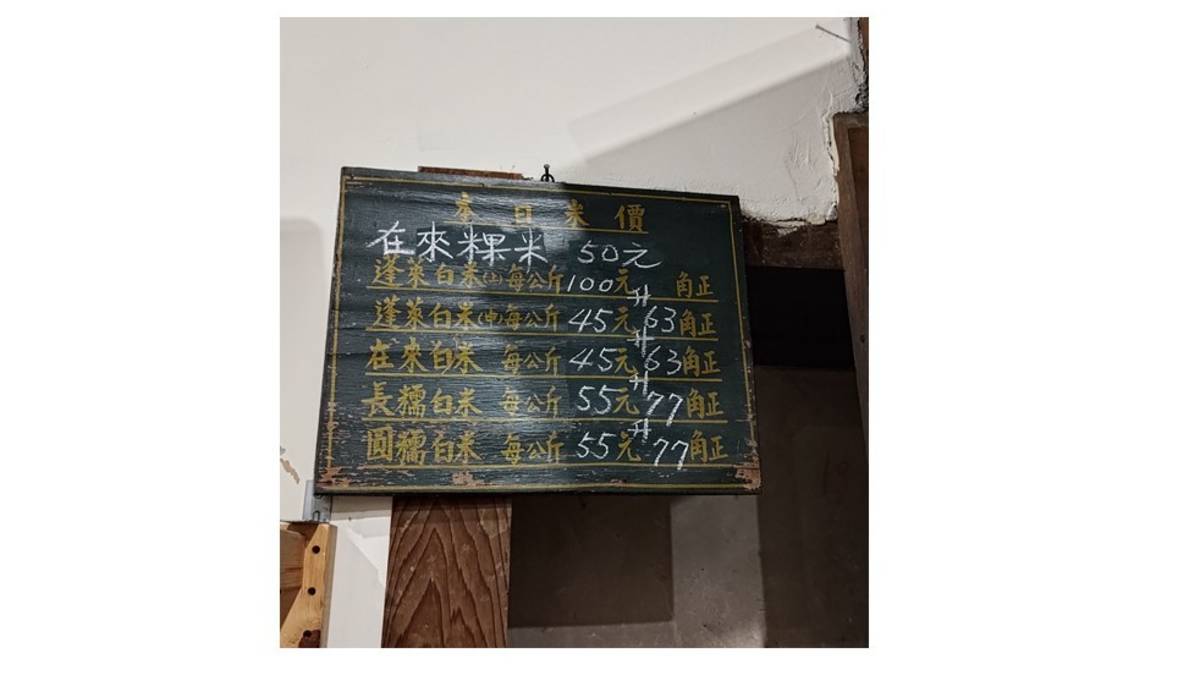 本日米價
在來粿米 50元
蓬萊白米(上)每公斤100元 角正
蓬萊白米(中)每公斤45元升63角正
在來白米 每公斤45元升63角正
長糯白米 每公斤55元升77角正
圓糯白米 每公斤55元升77角正